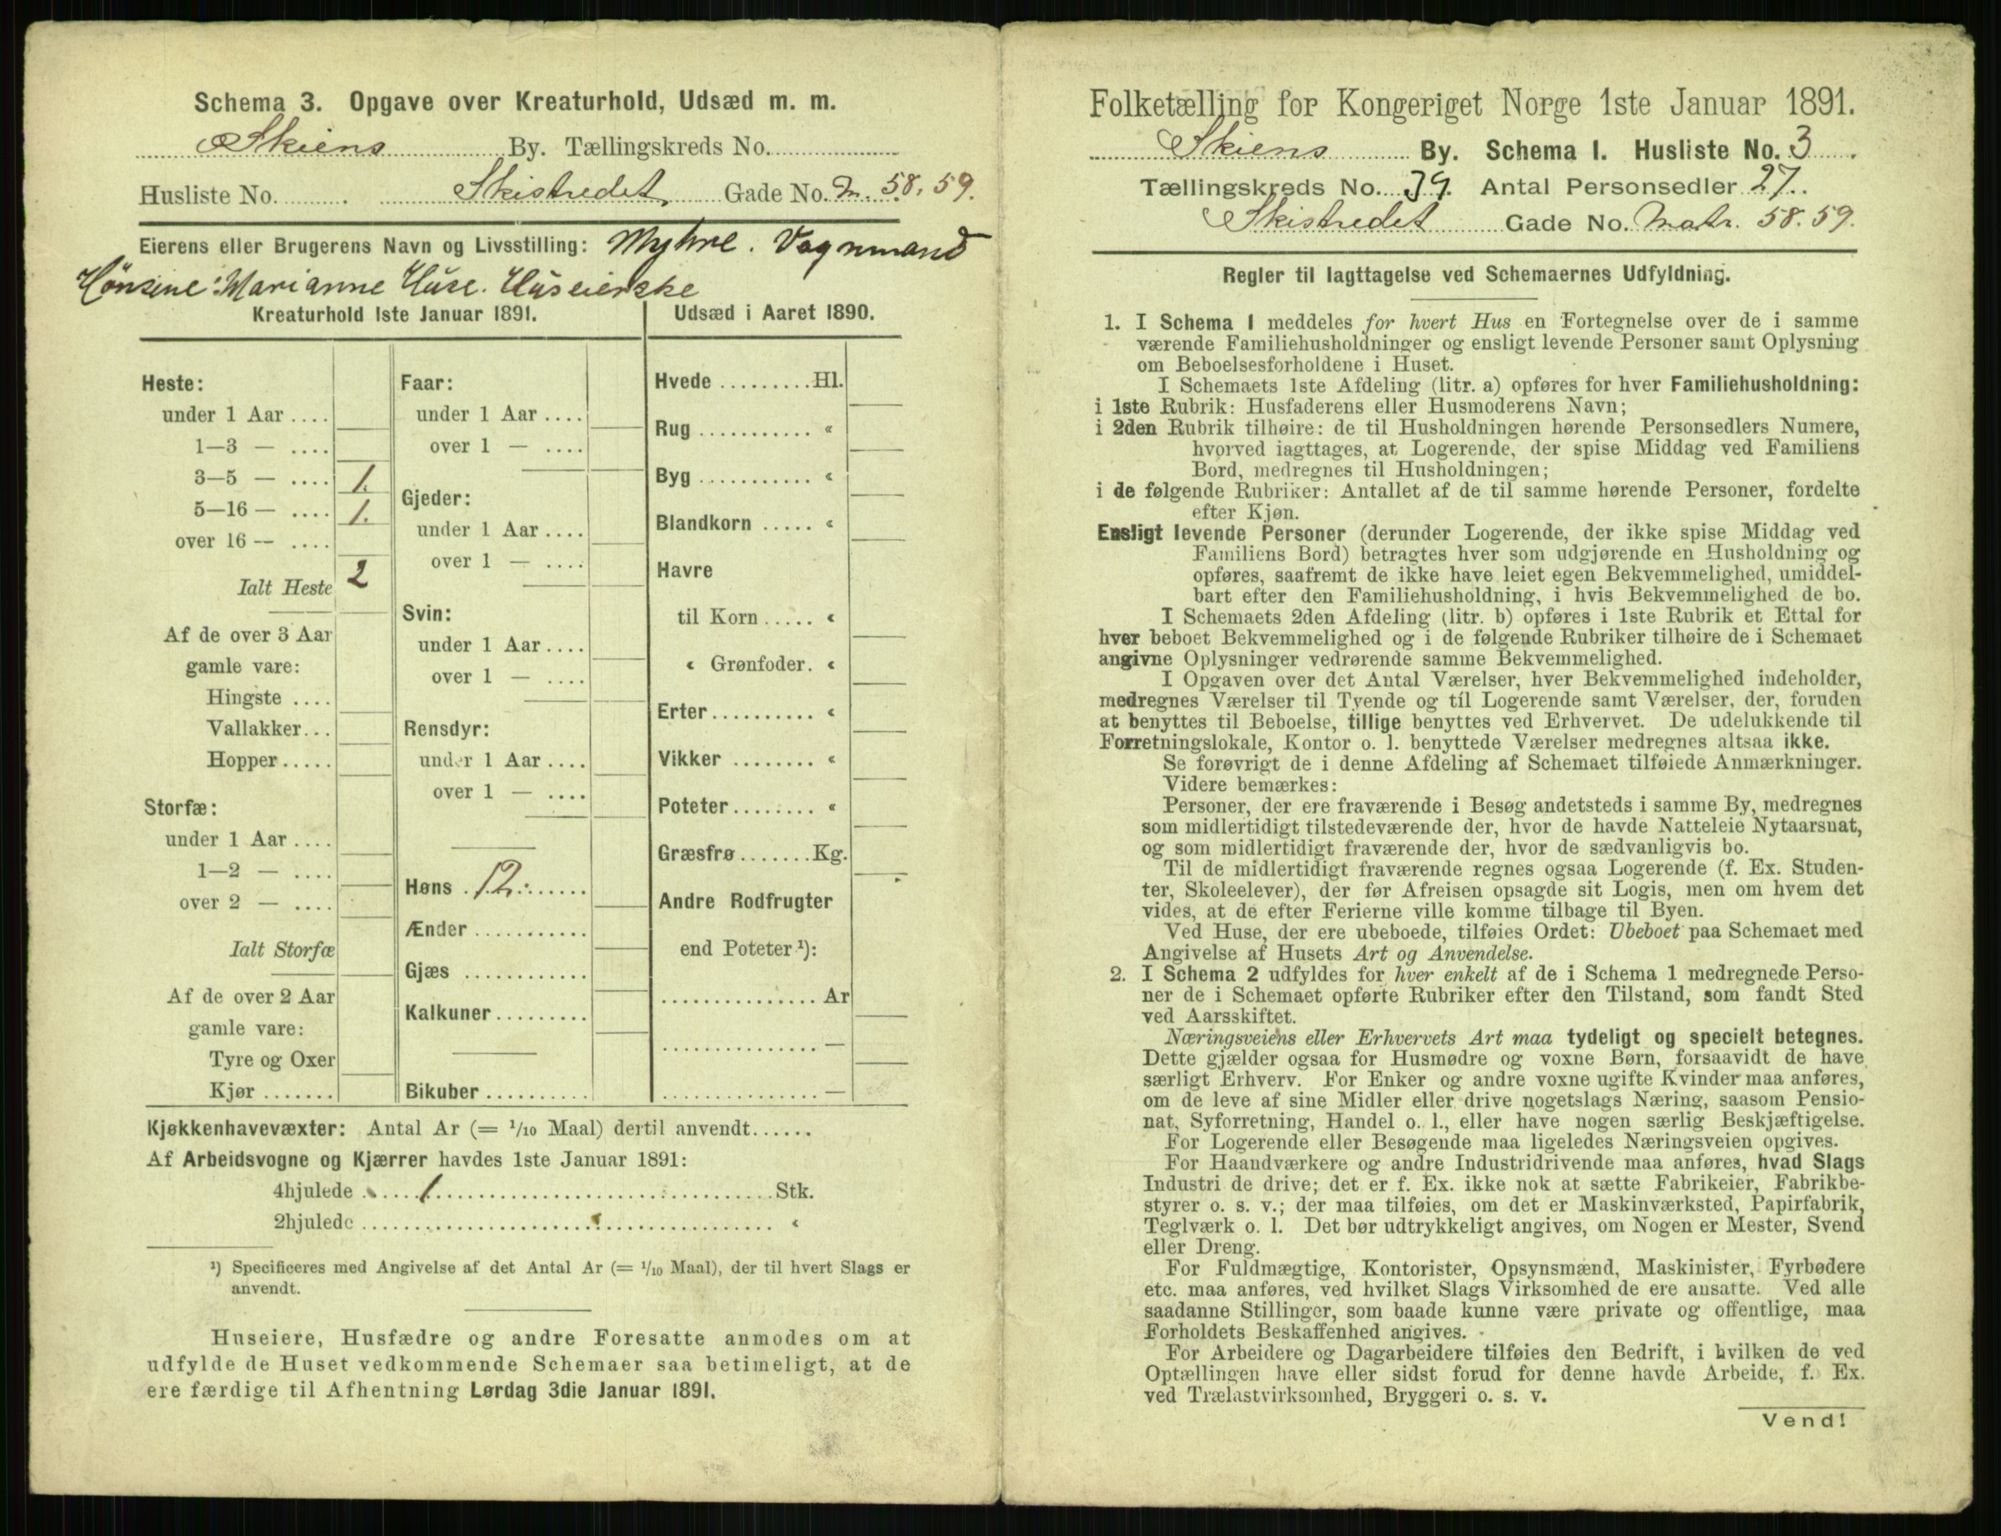 Schema 3. Opgave over Kreaturhold, Udsæd m. m.
Skiens By. Tællingskreds No.
Husliste No. Skistredet Gade No. M. 58. 59.
Eierens eller Brugerens Navn og Livsstilling: Myhre. Vognmand
Hønsene: Marianne Huse. Huseierske
Kreaturhold 1ste Januar 1891.
Heste:
under 1 Aar ....
1—3 — ....
3—5 — .... 1.
5—16 — .... 1.
over 16 — ....
Ialt Heste 2
Af de over 3 Aar
gamle vare:
Hingste ....
Vallakker...
Hopper.....
Storfæ:
under 1 Aar ....
1—2 — ....
over 2 — ....
Ialt Storfæ
Af de over 2 Aar
gamle vare:
Tyre og Oxer
Kjør .......
Faar:
under 1 Aar ....
over 1 — ....
Gjeder:
under 1 Aar ....
over 1 — ....
Svin:
under 1 Aar ....
over 1 — ....
Rensdyr:
under 1 Aar ....
over 1 — ....
Høns 12.
Ænder ...........
Gjæs ............
Kalkuner.........
Bikuber ..........
Udsæd i Aaret 1890.
Hvede .........Hl.
Rug ........... «
Byg ........... «
Blandkorn ..... «
Havre
til Korn ..... «
« Grønfoder. «
Erter.......... «
Vikker ........ «
Poteter........ «
Græsfrø.......Kg.
Andre Rodfrugter
end Poteter ¹):
............... Ar
............... —
............... —
Kjøkkenhavevæxter: Antal Ar (= 1/10 Maal) dertil anvendt......
Af Arbeidsvogne og Kjærrer havdes 1ste Januar 1891:
4hjulede 1 Stk.
2hjulede «
¹) Specificeres med Angivelse af det Antal Ar (= 1/10 Maal), der til hvert Slags er
anvendt.
Huseiere, Husfædre og andre Foresatte anmodes om at
udfylde de Huset vedkommende Schemaer saa betimeligt, at de
ere færdige til Afhentning Lørdag 3die Januar 1891.
Folketælling for Kongeriget Norge 1ste Januar 1891.
Skiens By. Schema I. Husliste No. 3
Tællingskreds No. 39. Antal Personsedler 27.
Skistredet Gade No. Matr. 58. 59.
Regler til Iagttagelse ved Schemaernes Udfyldning.
1. I Schema 1 meddeles for hvert Hus en Fortegnelse over de i samme
værende Familiehusholdninger og ensligt levende Personer samt Oplysning
om Beboelsesforholdene i Huset.
I Schemaets 1ste Afdeling (litr. a) opføres for hver Familiehusholdning:
i 1ste Rubrik: Husfaderens eller Husmoderens Navn;
i 2den Rubrik tilhøire: de til Husholdningen hørende Personsedlers Numere,
hvorved iagttages, at Logerende, der spise Middag ved Familiens
Bord, medregnes til Husholdningen;
i de følgende Rubriker: Antallet af de til samme hørende Personer, fordelte
efter Kjøn.
Ensligt levende Personer (derunder Logerende, der ikke spise Middag ved
Familiens Bord) betragtes hver som udgjørende en Husholdning og
opføres, saafremt de ikke have leiet egen Bekvemmelighed, umiddel-
bart efter den Familiehusholdning, i hvis Bekvemmelighed de bo.
I Schemaets 2den Afdeling (litr. b) opføres i 1ste Rubrik et Ettal for
hver beboet Bekvemmelighed og i de følgende Rubriker tilhøire de i Schemaet
angivne Oplysninger vedrørende samme Bekvemmelighed.
I Opgaven over det Antal Værelser, hver Bekvemmelighed indeholder,
medregnes Værelser til Tyende og til Logerende samt Værelser, der, foruden
at benyttes til Beboelse, tillige benyttes ved Erhvervet. De udelukkende til
Forretningslokale, Kontor o. l. benyttede Værelser medregnes altsaa ikke.
Se forøvrigt de i denne Afdeling af Schemaet tilføiede Anmærkninger.
Videre bemærkes:
Personer, der ere fraværende i Besøg andetsteds i samme By, medregnes
som midlertidigt tilstedeværende der, hvor de havde Natteleie Nytaarsnat,
og som midlertidigt fraværende der, hvor de sædvanligvis bo.
Til de midlertidigt fraværende regnes ogsaa Logerende (f. Ex. Studen-
ter, Skoleelever), der før Afreisen opsagde sit Logis, men om hvem det
vides, at de efter Ferierne ville komme tilbage til Byen.
Ved Huse, der ere ubeboede, tilføies Ordet: Ubeboet paa Schemaet med
Angivelse af Husets Art og Anvendelse.
2. I Schema 2 udfyldes for hver enkelt af de i Schema 1 medregnede Perso-
ner de i Schemaet opførte Rubriker efter den Tilstand, som fandt Sted
ved Aarsskiftet.
Næringsveiens eller Erhvervets Art maa tydeligt og specielt betegnes.
Dette gjælder ogsaa for Husmødre og voxne Børn, forsaavidt de have
særligt Erhverv. For Enker og andre voxne ugifte Kvinder maa anføres,
om de leve af sine Midler eller drive nogetslags Næring, saasom Pensio-
nat, Syforretning, Handel o. l., eller have nogen særlig Beskjæftigelse.
For Logerende eller Besøgende maa ligeledes Næringsveien opgives.
For Haandværkere og andre Industridrivende maa anføres, hvad Slags
Industri de drive; det er f. Ex. ikke nok at sætte Fabrikeier, Fabrikbe-
styrer o. s. v.; der maa tilføies, om det er Maskinværksted, Papirfabrik,
Teglværk o. l. Det bør udtrykkeligt angives, om Nogen er Mester, Svend
eller Dreng.
For Fuldmægtige, Kontorister, Opsynsmænd, Maskinister, Fyrbødere
etc. maa anføres, ved hvilket Slags Virksomhed de ere ansatte. Ved alle
saadanne Stillinger, som baade kunne være private og offentlige, maa
Forholdets Beskaffenhed angives.
For Arbeidere og Dagarbeidere tilføies den Bedrift, i hvilken de ved
Optællingen have eller sidst forud for denne havde Arbeide, f. Ex.
ved Trælastvirksomhed, Bryggeri o. s. v.
Vend!